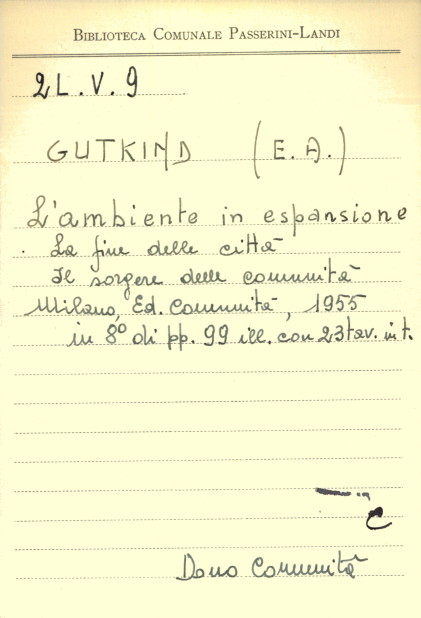 BIBLIOTECA COMUNALE PASSERINI-LANDI
2L.V.9
GUTKIND (E.A.)
L'ambiente in espansione
La fine delle città
Il sorgere delle comunità
Milano, Ed. Comunità, 1955
in 8° di pp. 99 ill. con 23 tav. in t.
C
Dono Comunità